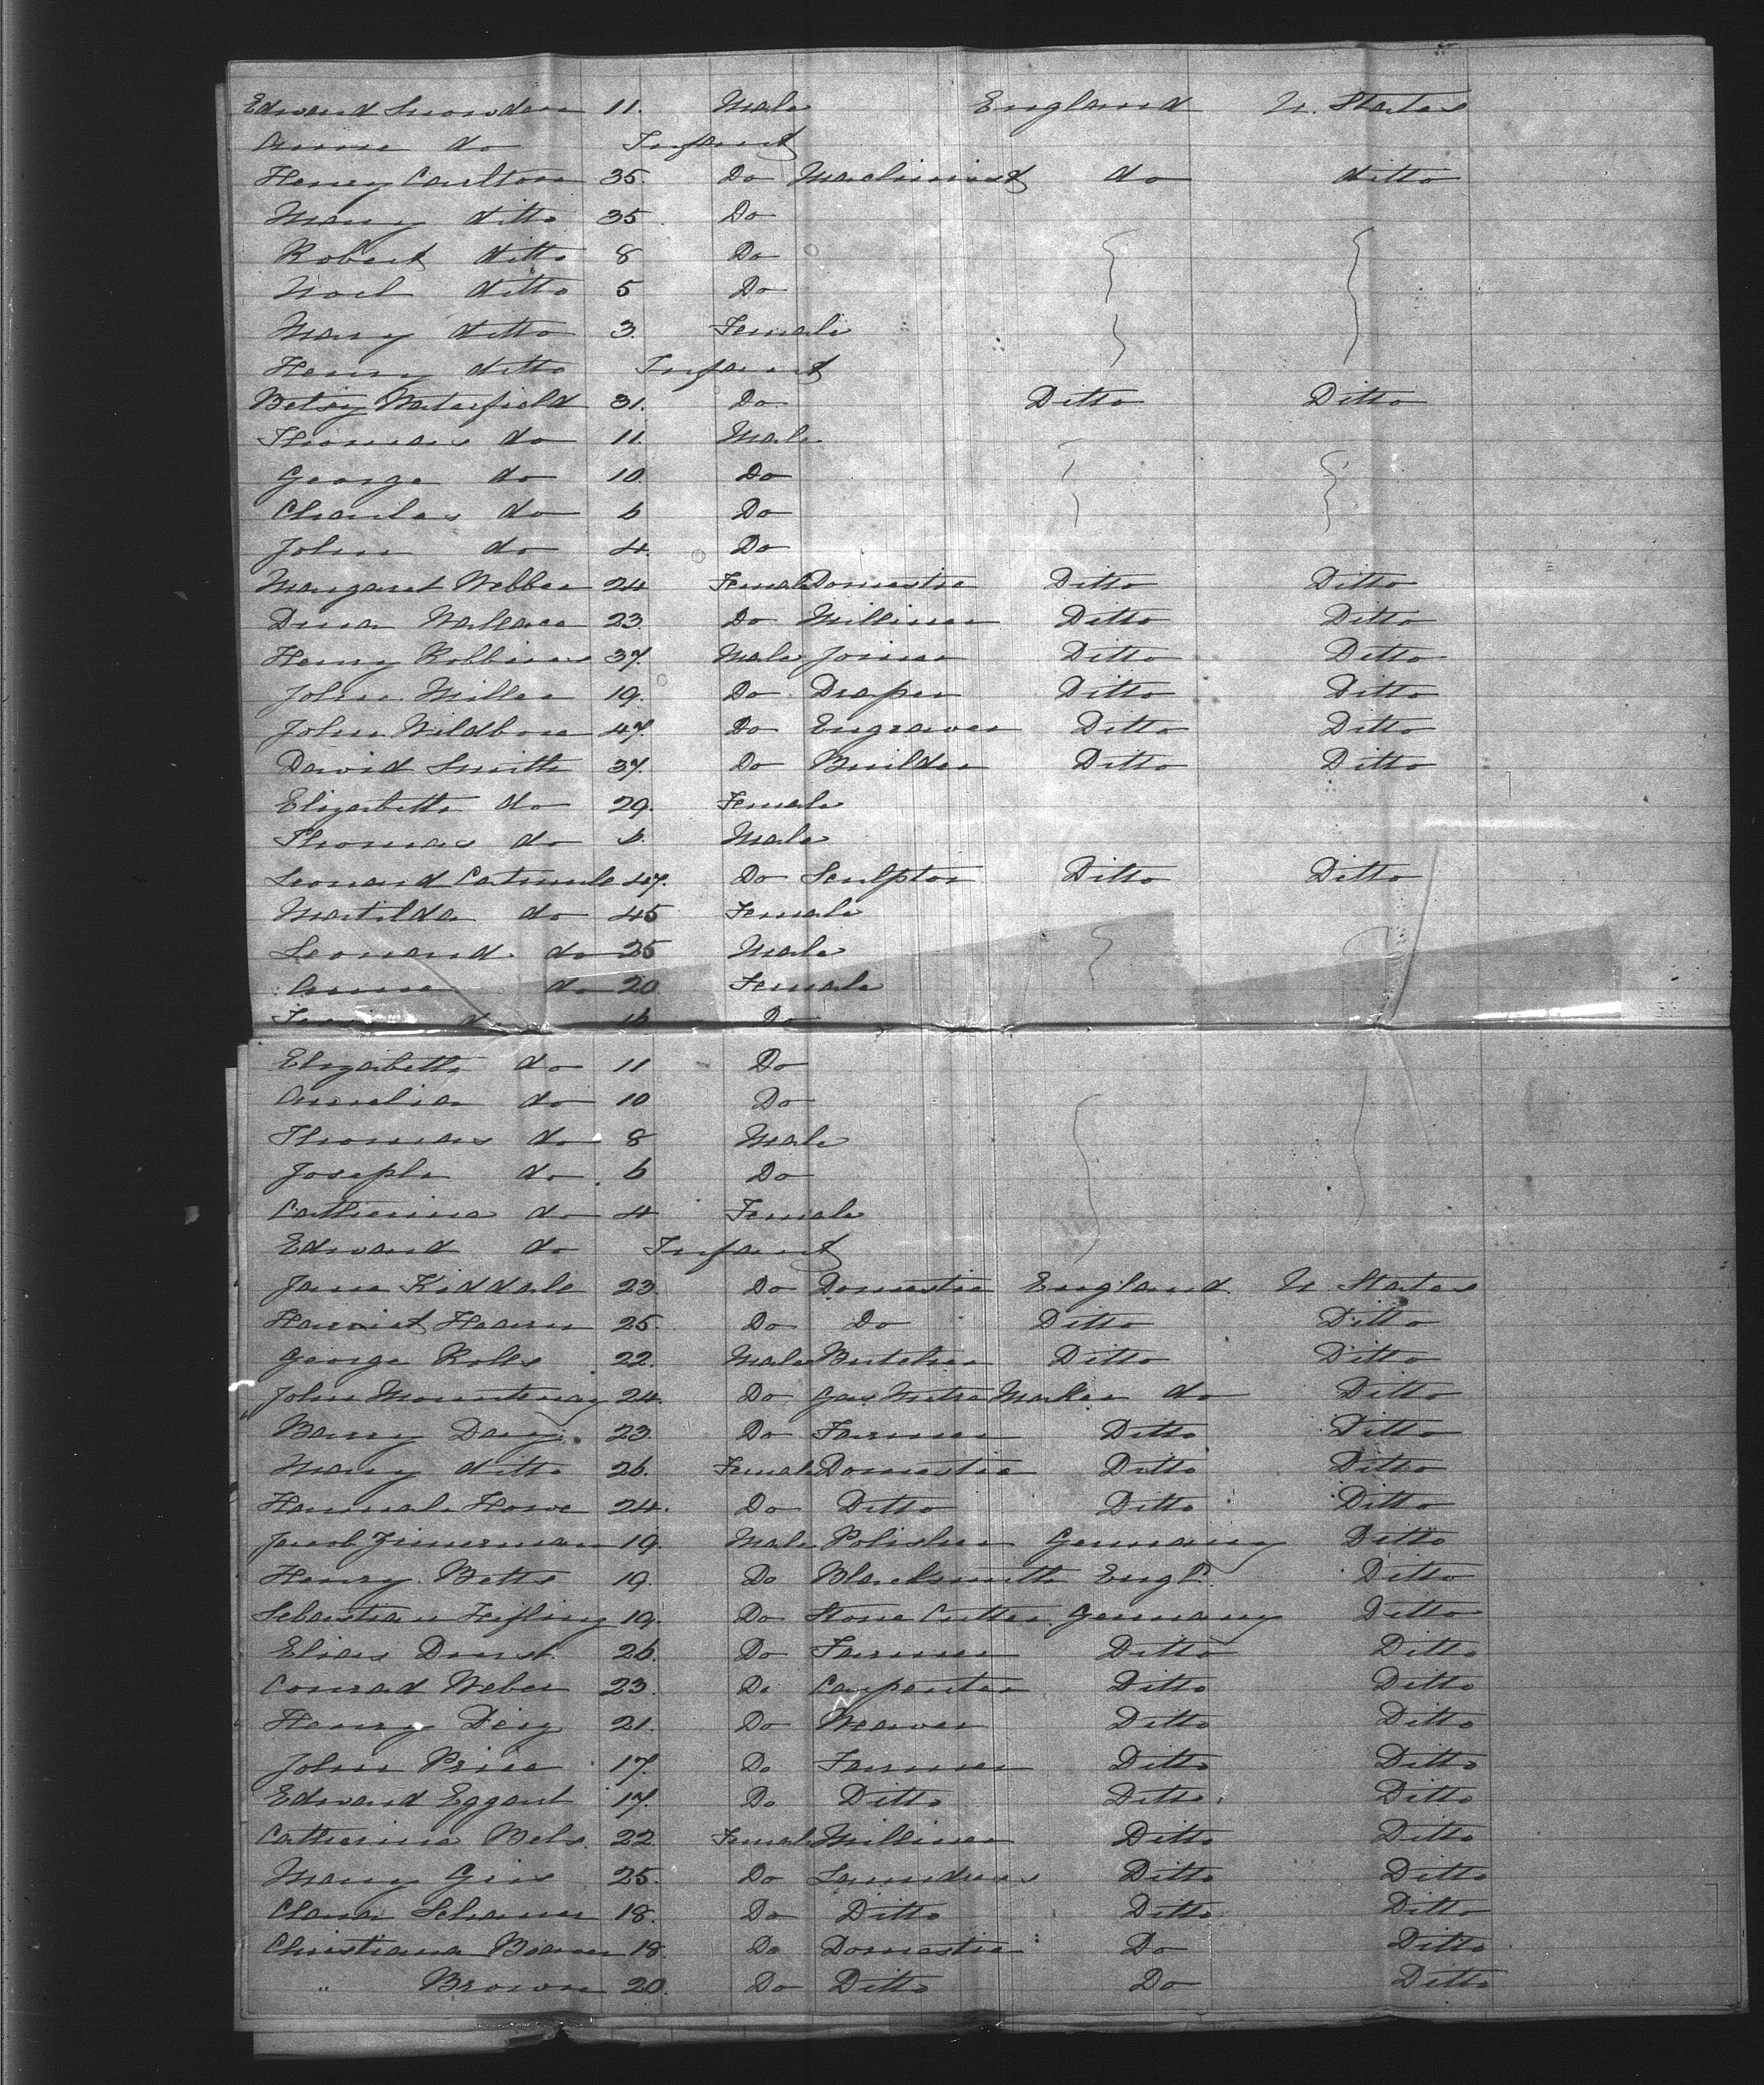 Edward Snowden 11. Male England U. States
Anne do Infant
Henry Carlton 35. Do Machinist do ditto
Mary ditto 35 Do
Robert ditto 8 Do
Noel ditto 5 Do
Mary ditto 3. Female
Henry ditto Infant
Betsy Waterfield 31. Do Ditto Ditto
Thomas do 11. Male
George do 10 Do
Charles do 6 Do
John do 4. Do
Margaret Webber 24 Female Domestic Ditto Ditto
Dina Wallace 23. Do Milliner Ditto Ditto
Henry Robbins 37. Male Joiner Ditto Ditto
John Miller 19. Do Draper Ditto Ditto
John Wildbore 47. Do Engraver Ditto Ditto
David Smith 37. Do Builder Ditto Ditto
Elizabeth do 29. Female
Thomas do 6. Male
Leonard Catmule 47. Do Sculptor Ditto Ditto
Matilda do 45 Female
Leonard do 25 Male
Anne do 20 Female
16 Do
Elizabeth do 11 Do
Amelia do 10 Do
Thomas do 8 Male
Joseph do 6 Do
Catherine do 4 Female
Edward do Infant
Jane Kiddale 23. Do Domestic England U. States
Harriet Hearn 25. Do Do Ditto Ditto
George Rolls 22. Male Butcher Ditto Ditto
John Mounteney 24. Do Gas Metre Maker do Ditto
Barry Davy. 23. Do Farmer Ditto Ditto
Mary ditto 26. Female Domestic Ditto Ditto
Hannah Howe 24. Do Ditto Ditto Ditto
Jacob Zimerman 19. Male Polisher Germany Ditto
Henry Betts 19. Do Blacksmith Engld. Ditto
Sebastian Hefling 19. Do Stone Cutter Germany Ditto
Elias Durst 26. Do Farmer Ditto Ditto
Conrad Weber 23. Do Carpenter Ditto Ditto
Henry Deig 21. Do Weaver Ditto Ditto
John Price 17. Do Farmer Ditto Ditto
Edward Eggart 17. Do Ditto Ditto Ditto
Catherine Bels. 22. Female Milliner Ditto Ditto
Mary Gris 25. Do Laundress Ditto Ditto
Clara Schaner 18. Do Ditto Ditto Ditto
Christiana 18. Do Domestic Do Ditto
" Brown 20. Do Ditto Do Ditto